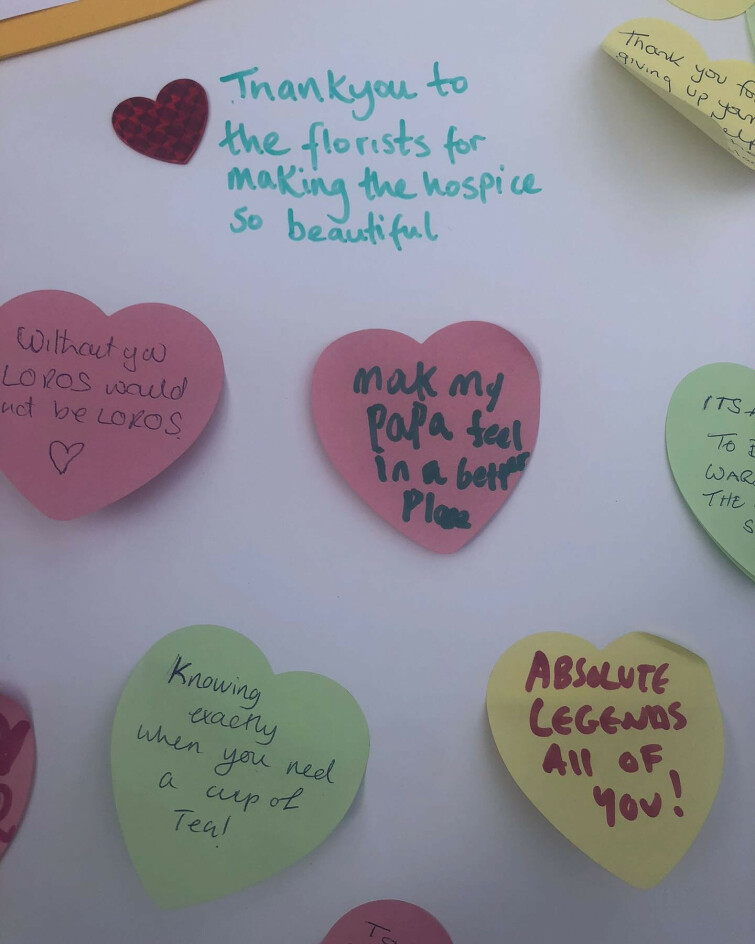 Thankyou to
the florists for
making the hospice
so beautiful
Thank you for
giving up your
Without you
LOROS would
not be LOROS.
mak my
PaPa feel
in a better
Place
ITS A
TO
WAR
THE
S
Knowing
exactly
when you need
a cup of
Tea!
ABSOLUTE
LEGENDS
All OF
YOU!